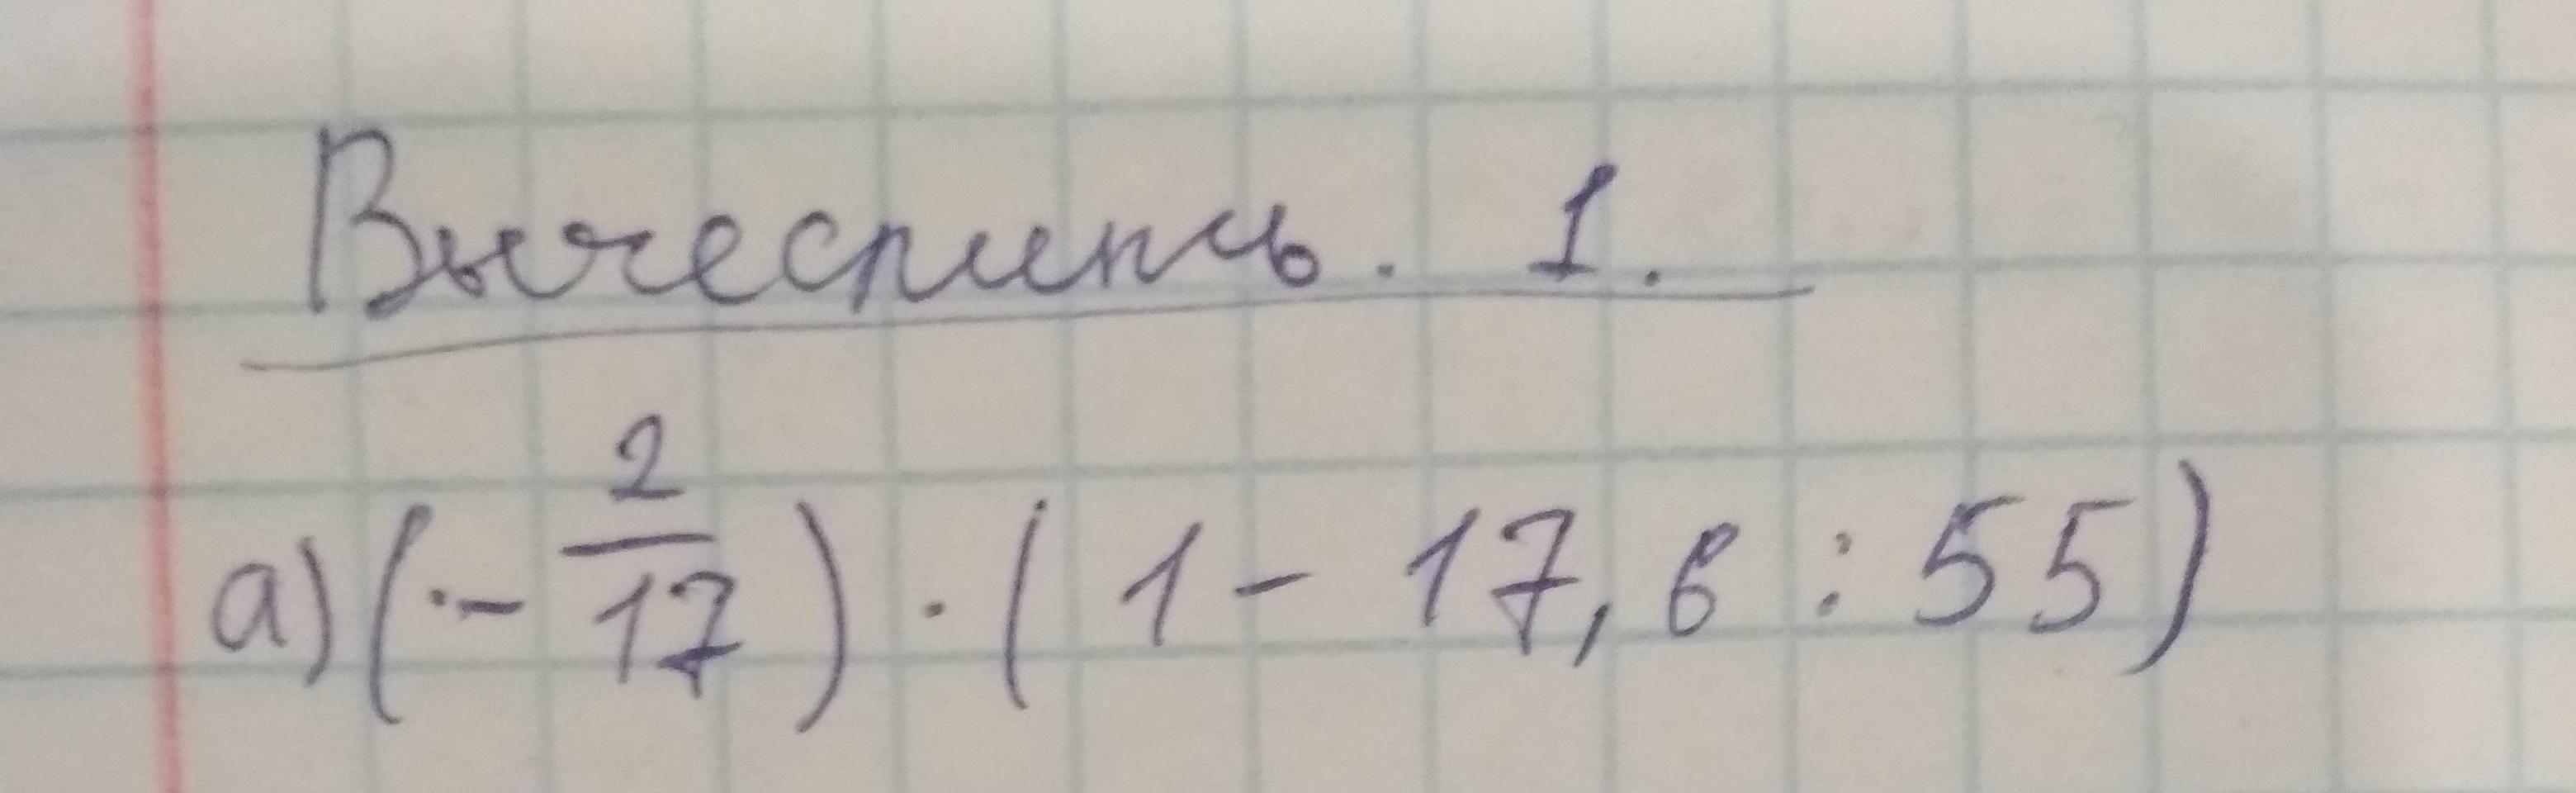 Вычеслить. 1.
а) (- 2/17) · (1 - 17,6 : 55)